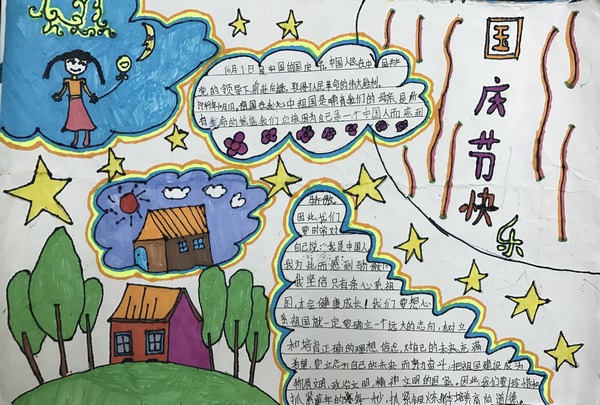 国庆节快乐
10月1日是中国的国庆节,中国人民在中国共产
党的领导下前赴后继,取得人民革命的伟大胜利。
1949年10月1日,
祖国是哺育我们的母亲,是所
有生命的 我们应该因为自己是一个中国人而感到
骄傲
因此我们
要时常对
自己说:“我是中国人,
我为此而感到骄傲!”
我坚信只有亲心系祖
国,才会健康成长!我们要想心
系祖国就一定要确立一个远大的志向,树立
和培育正确的理想信念,对自己的未来充满
希望,要立志为自己的未来而努力奋斗,把祖国建设成为
物质文明,政治文明,精神文明的国家。因此我们要珍惜和
抓紧童年的每一秒,抓紧锻炼体培育道德。